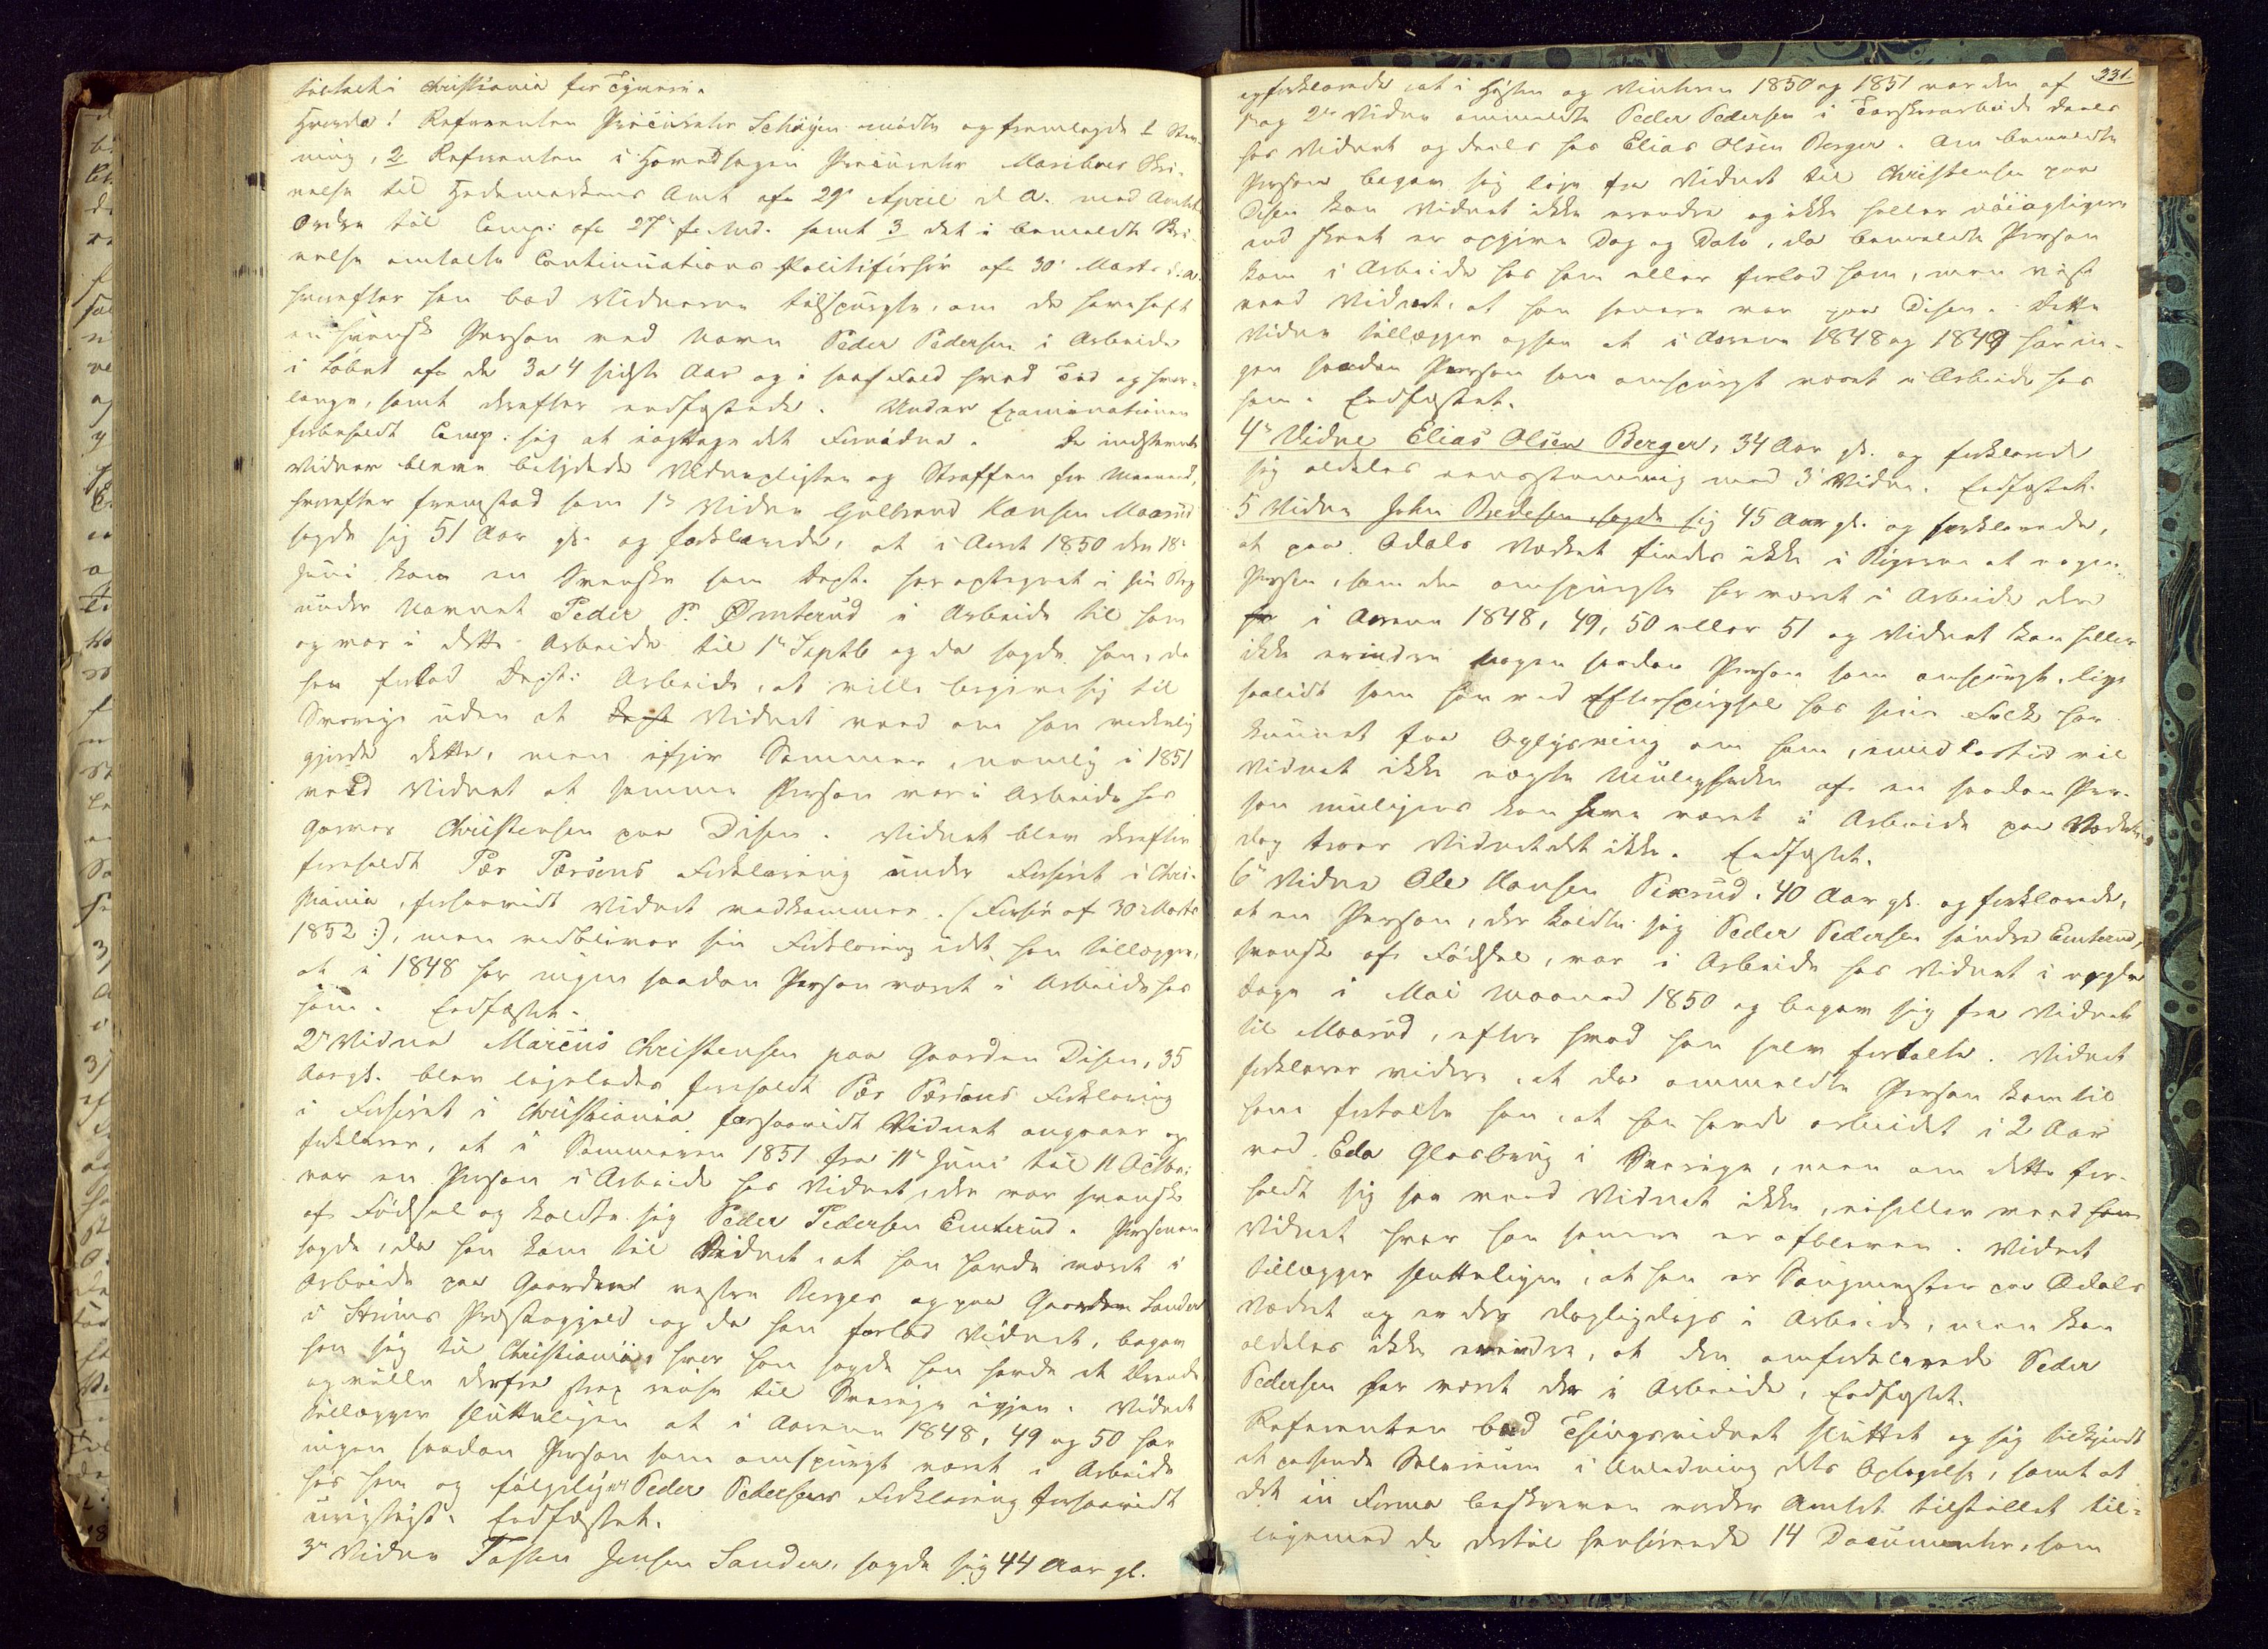 tiltalt i Christiania for Tyverie.
Hvorda! Referenten Procurator Schøyen mødte og fremlagde 1 Stev-
ning, 2 Referenten i Hovedsagen Procurator Mariboes Skri-
velse til Hedemarkens Amt af 29de April d. A. med Amtets
Ordre til Comp: af 27de f. Md. samt 3 det i bemeldte Skri-
velse omtalte Continuations Politiforhør af 30te Marts d. A.
hvorefter han bad Vidnerne tilspurgte, om de have haft
en svensk Person ved Navn Peder Pedersen i Arbeide
i Løbet af de 3 a 4 sidste Aar og i saa Fald hvad Tid og hvor-
længe, samt derefter eedfæstede. Under Examinationen
forbeholdt Comp. sig at iagttage det Fornødne. De indstevnte
Vidner bleve betydede Vidnepligten og Straffen for Meeneed,
hvorefter fremstod som 1ste Vidne Gulbrand Hansen Maarud
sagde sig 51 Aar gl. og forklarede, at i Aaret 1850 den 18de
Juni kom en Svenske som Dept. har optegnet i sin Bog
under Navnet Peder P. Ømterud i Arbeide til ham
og var i dette Arbeide til 1ste Septb og da sagde han, da
han forlod Dept: Arbeide, at ville begive sig til
Sverige uden at Dept Vidnet veed om han virkelig
gjorde dette, men ifjor Sommer, nemlig i 1851
veed Vidnet at samme Person var i Arbeide hos
Garver Christensen paa Disen. Vidnet blev derefter
foreholdt Pær Pærsons Forklaring under Forhøret i Chri-
stiania, forsaavidt Vidnet vedkommer. (Forhør af 30te Marts
1852:), men vedbliver sin Forklaring idet han tillægger,
at i 1848 har ingen saadan Person været i Arbeide hos
ham. Eedfæstet.
2det Vidne Marcus Christensen paa Gaarden Disen, 35
Aar gl. blev ligeledes foreholdt Pær Pærsons Forklaring
i Forhøret i Christiania forsaavidt Vidnet angaaer og
forklarer, at i Sommeren 1851 fra 11te Juni til 11 Octbr:
var en Person i Arbeide hos Vidnet, der var svensk
af Fødsel og kaldte sig Peder Pedersen Emterud. Personen
sagde, da han kom til Vidnet, at han havde været i
Arbeide paa Gaarden vestre Berger og paa Gaarden Sander
i Strøms Præstegjeld og da han forlod Vidnet, begav
han sig til Christiania, hvor han sagde han havde et Ærende
og vilde derfra strax reise til Sverige igjen. Vidnet
tillægger sluttelig at i Aarene 1848, 49 og 50 har
ingen saadan Person som omspurgt været i Arbeide
hos ham og følgelig er Peder Pedersens Forklaring forsaavidt
urigtig. Eedfæstet.
3die Vidne Tosten Jensen Sander, sagde sig 44 Aar gl.
331.
og forklarede, at i Høsten og Vinteren 1850 og 1851 var den af
1ste og 2det Vidne ommeldte Peder Pedersen i Tærskerarbeide deels
hos Vidnet og deels hos Elias Olsen Berger. Om bemeldte
Person begav sig lige fra Vidnet til Christensen paa
Disen kan Vidnet ikke erindre og ikke heller nøiagtigere
end skeet er opgive Dag og Dato, da bemeldte Person
kom i Arbeide hos ham eller forlod ham, men vist
veed Vidnet, at han senere var paa Disen. Dette
Vidne tillægger ogsaa at i Aarene 1848 og 1849 har in-
gen saadan Person som omspurgt været i Arbeide hos
ham. Eedfæstet.
4de Vidne Elias Olsen Berger, 34 Aar gl. og forklarede
sig aldeles eensstemmig med 3die Vidne. Eedfæstet.
5 Vidne John Bredesen, sagde sig 45 Aar gl. og forklarede,
at paa Odals Værket findes ikke i Bøgerne at nogen
Person, som den omspurgte har været i Arbeide der
i Aarene 1848, 49, 50 eller 51 og Vidnet kan heller
ikke erindre nogen saadan Person som omspurgt, lige
saalidt som han ved Efterspørgsel hos sine Folk har
kunnet faa Oplysning om ham, imidlertid vil
Vidnet ikke nægte Muligheden af en saadan Per-
son muligens kan have været i Arbeide paa Værket,
dog troer Vidnet det ikke. Eedfæstet.
6te Vidne Ole Hansen Pexrud, 40 Aar gl. og forklarede,
at en Person, der kaldte sig Peder Pedersen søndre Emterud,
svensk af Fødsel, var i Arbeide hos Vidnet i nogle
Dage i Mai Maaned 1850 og begav sig fra Vidnet
til Maarud, efter hvad han selv fortalte. Vidnet
forklarer videre, at da ommeldte Person kom til
ham fortalte han, at han havde arbeidet i 2 Aar
ved Eda Glasbrug i Sverige, men om dette for-
holdt sig saa veed Vidnet ikke, eiheller veed han
Vidnet hvor han senere er afbleven. Vidnet
tillægger sluttelig, at han er Saugmester paa Odals
Værket og er der dagligdags i Arbeide, men kan
aldeles ikke erindre, at den omforklarede Peder
Pedersen har været der i Arbeide, Eedfæstet.
Referenten bad Thingsvidnet sluttet og sig tilkjendt
et passende Salarium i Anledning dets Optagelse, samt at
det in Forma beskreven vorder Amtet tilstillet til-
ligemed de dertil henhørende 14 Documenter, som